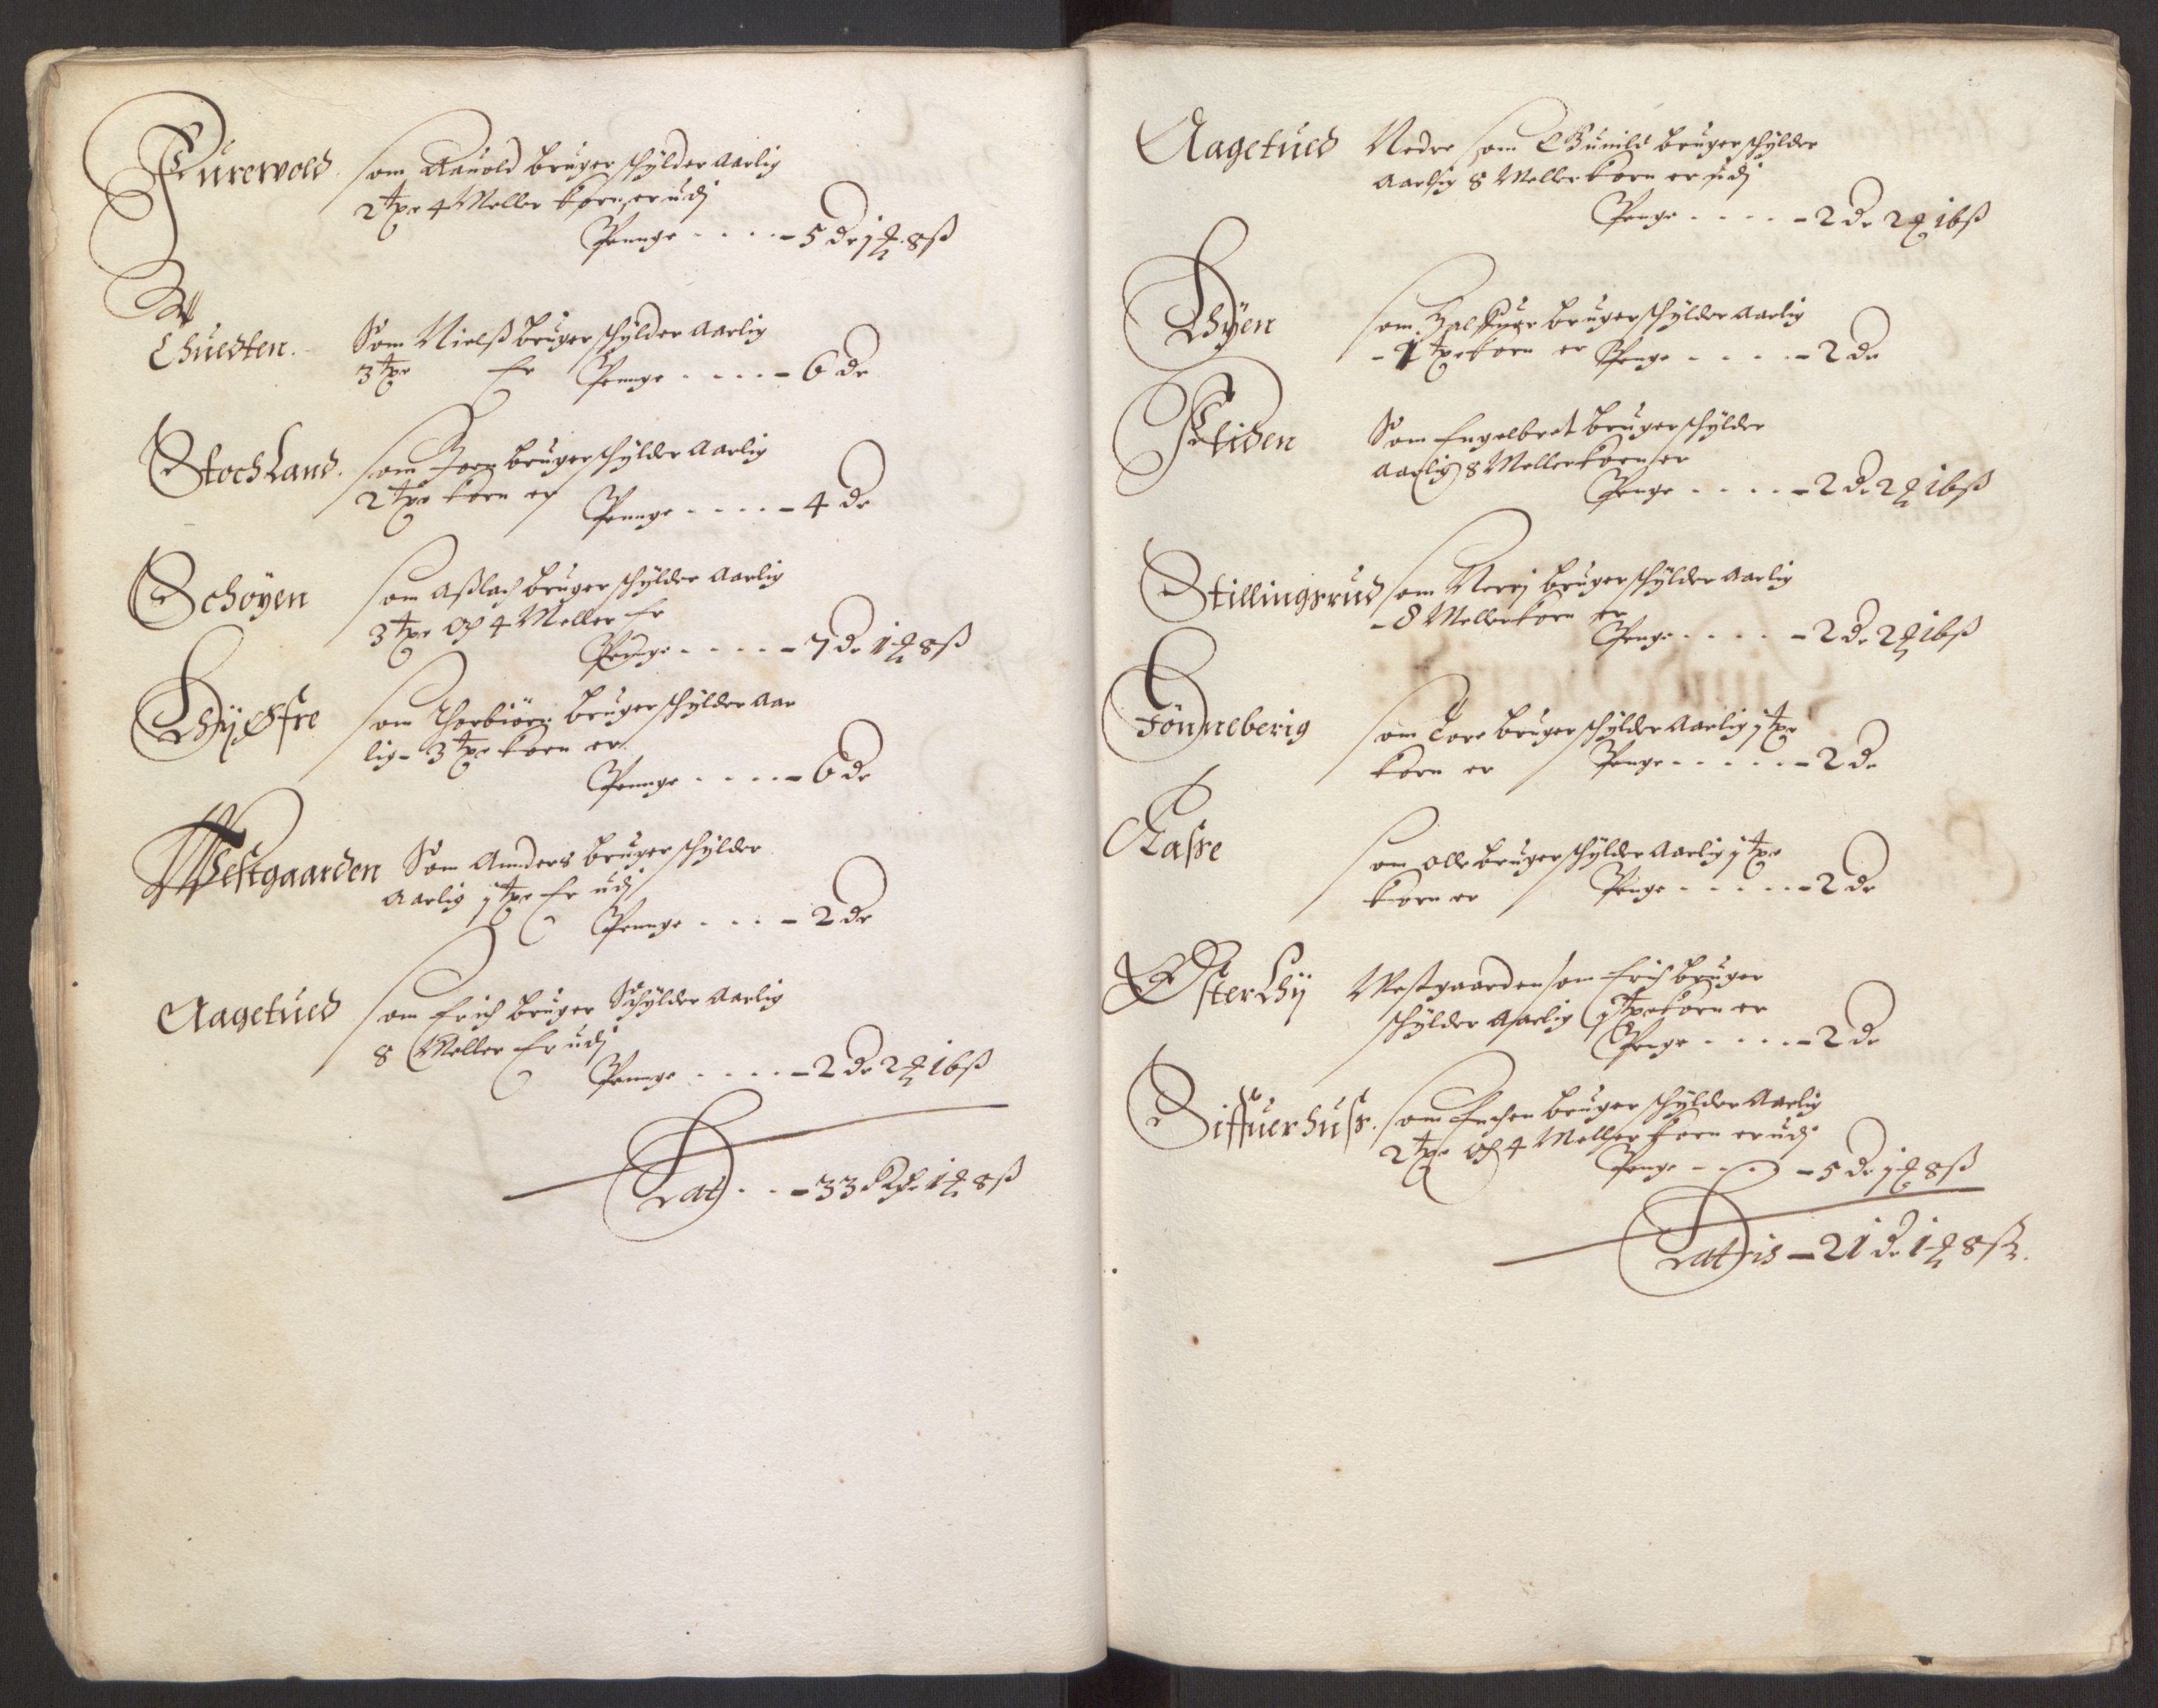 Fürewold som Aauold bruger schÿlder Aarlig
2 tpe 4 Meller korn, er udj
Pennge - - - - 5 dr 1 ℔ 8 ß
Chuesten. Som Nielß bruger schÿlder Aarlig
3 tpe Er Pennge - - - - 6 dr
Stochland. som Joen bruger schÿlder Aarlig
2 tpe korn er Pennge - - - - 4 dr
Schoÿen som Aßlach bruger schÿlder Aarlig
3 tpe Och 4 Meller Er
Pennge - - - - 7 dr 1 ℔ 8 ß
Bÿ Øfre som Thorbiörn bruger schÿlder Aar
lig - 3 tpe korn er
Pennge - - - - 6 dr
Westgaarden Som Anders bruger schÿlder
Aarlig 1 tpe Er udj
Pennge - - - 2 dr
Aagetued som Erich bruger Schÿlder Aarlig
8 Meller Er udj
Pennge - - - - 2 dr 2 ℔ 16 ß
Lat - - 33 Rdr 1 ℔ 8 ß
Aagetued Nedre som Gunild bruger schÿlder
Aarlig 8 Meller korn er udj
Penge - - - - 2 dr 2 ℔ 16 ß
som bruger schÿlder Aarlig
- 1 tpe korn er Penge - - - - 2 dr
Som Engelbret bruger schÿlder
Aarlig 8 Meller korn er
Penge - - - - 2 dr 2 ℔ 16 ß
Stillingsrud som bruger schÿlder Aarlig
- 8 Meller korn er
Penge - - - - 2 dr 2 ℔ 16 ß
Tönneberig som Tore bruger schÿlder Aarlig 1 tpe
korn er Penge - - - - - 2 dr
Aasse som Olle bruger schÿlder Aarlig 1 tpe
korn er Penge - - - - - 2 dr
Øster Lÿ Westgaarden som Erich bruger
schÿlder Aarlig 1 tpe korn er
Penge - - - - 2 dr
Siffuerhuß. som bruger schÿlder Aarlig
2 tpe Och 4 Meller korn er udj
Penge - - - 5 dr 1 ℔ 8 ß
Latris - 21 dr 1 ℔ 8 ß.